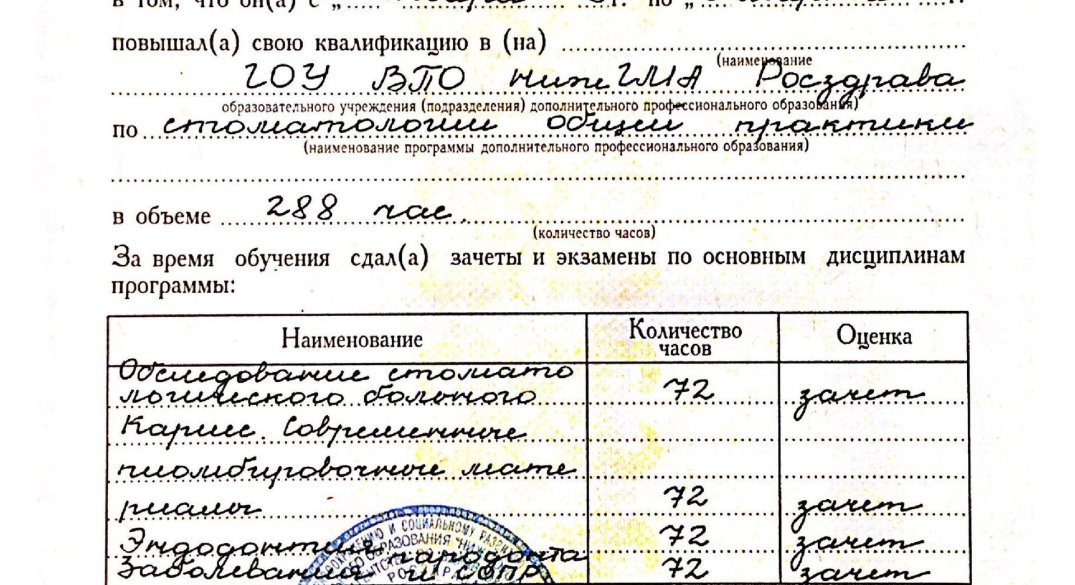 в том, что он(а) с „
повышал(а) свою квалификацию в (на)
(наименование
ГОУ ВПО НижГМА Росздрава
образовательного учреждения (подразделения) дополнительного профессионального образования)
по стоматологии общей практики
(наименование программы дополнительного профессионального образования)
в объеме 288 час.
(количество часов)
За время обучения сдал(а) зачеты и экзамены по основным дисциплинам
программы:
Наименование Количество часов Оценка
Обследование стомато
логического больного 72 зачет
Кариес. Современные
пломбировочные мате
риалы 72 зачет
Эндодонтия 72 зачет
Заболевания пародонта и СОПР 72 зачет
И СОЦИАЛЬНОМУ
ОБРАЗОВАНИЯ